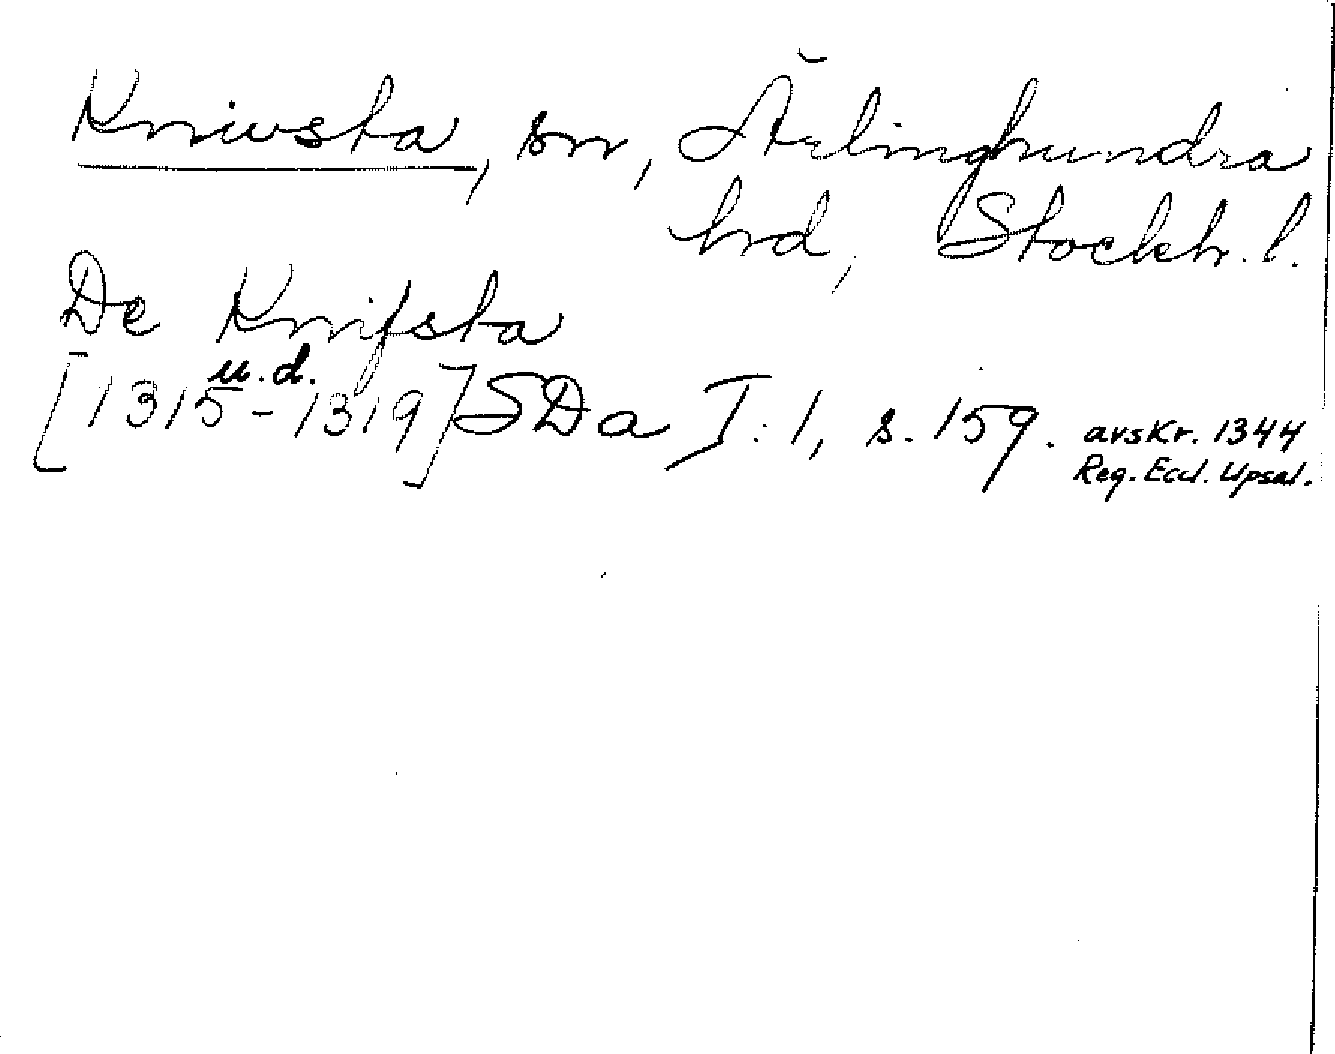 Knivsta, sn, Ärlinghundra
hrd, Stockh. l.
De Knifsta
u.d.
[1315-1319] SDa I:1, s. 159. avskr. 1344
Reg. Eccl. Upsal.